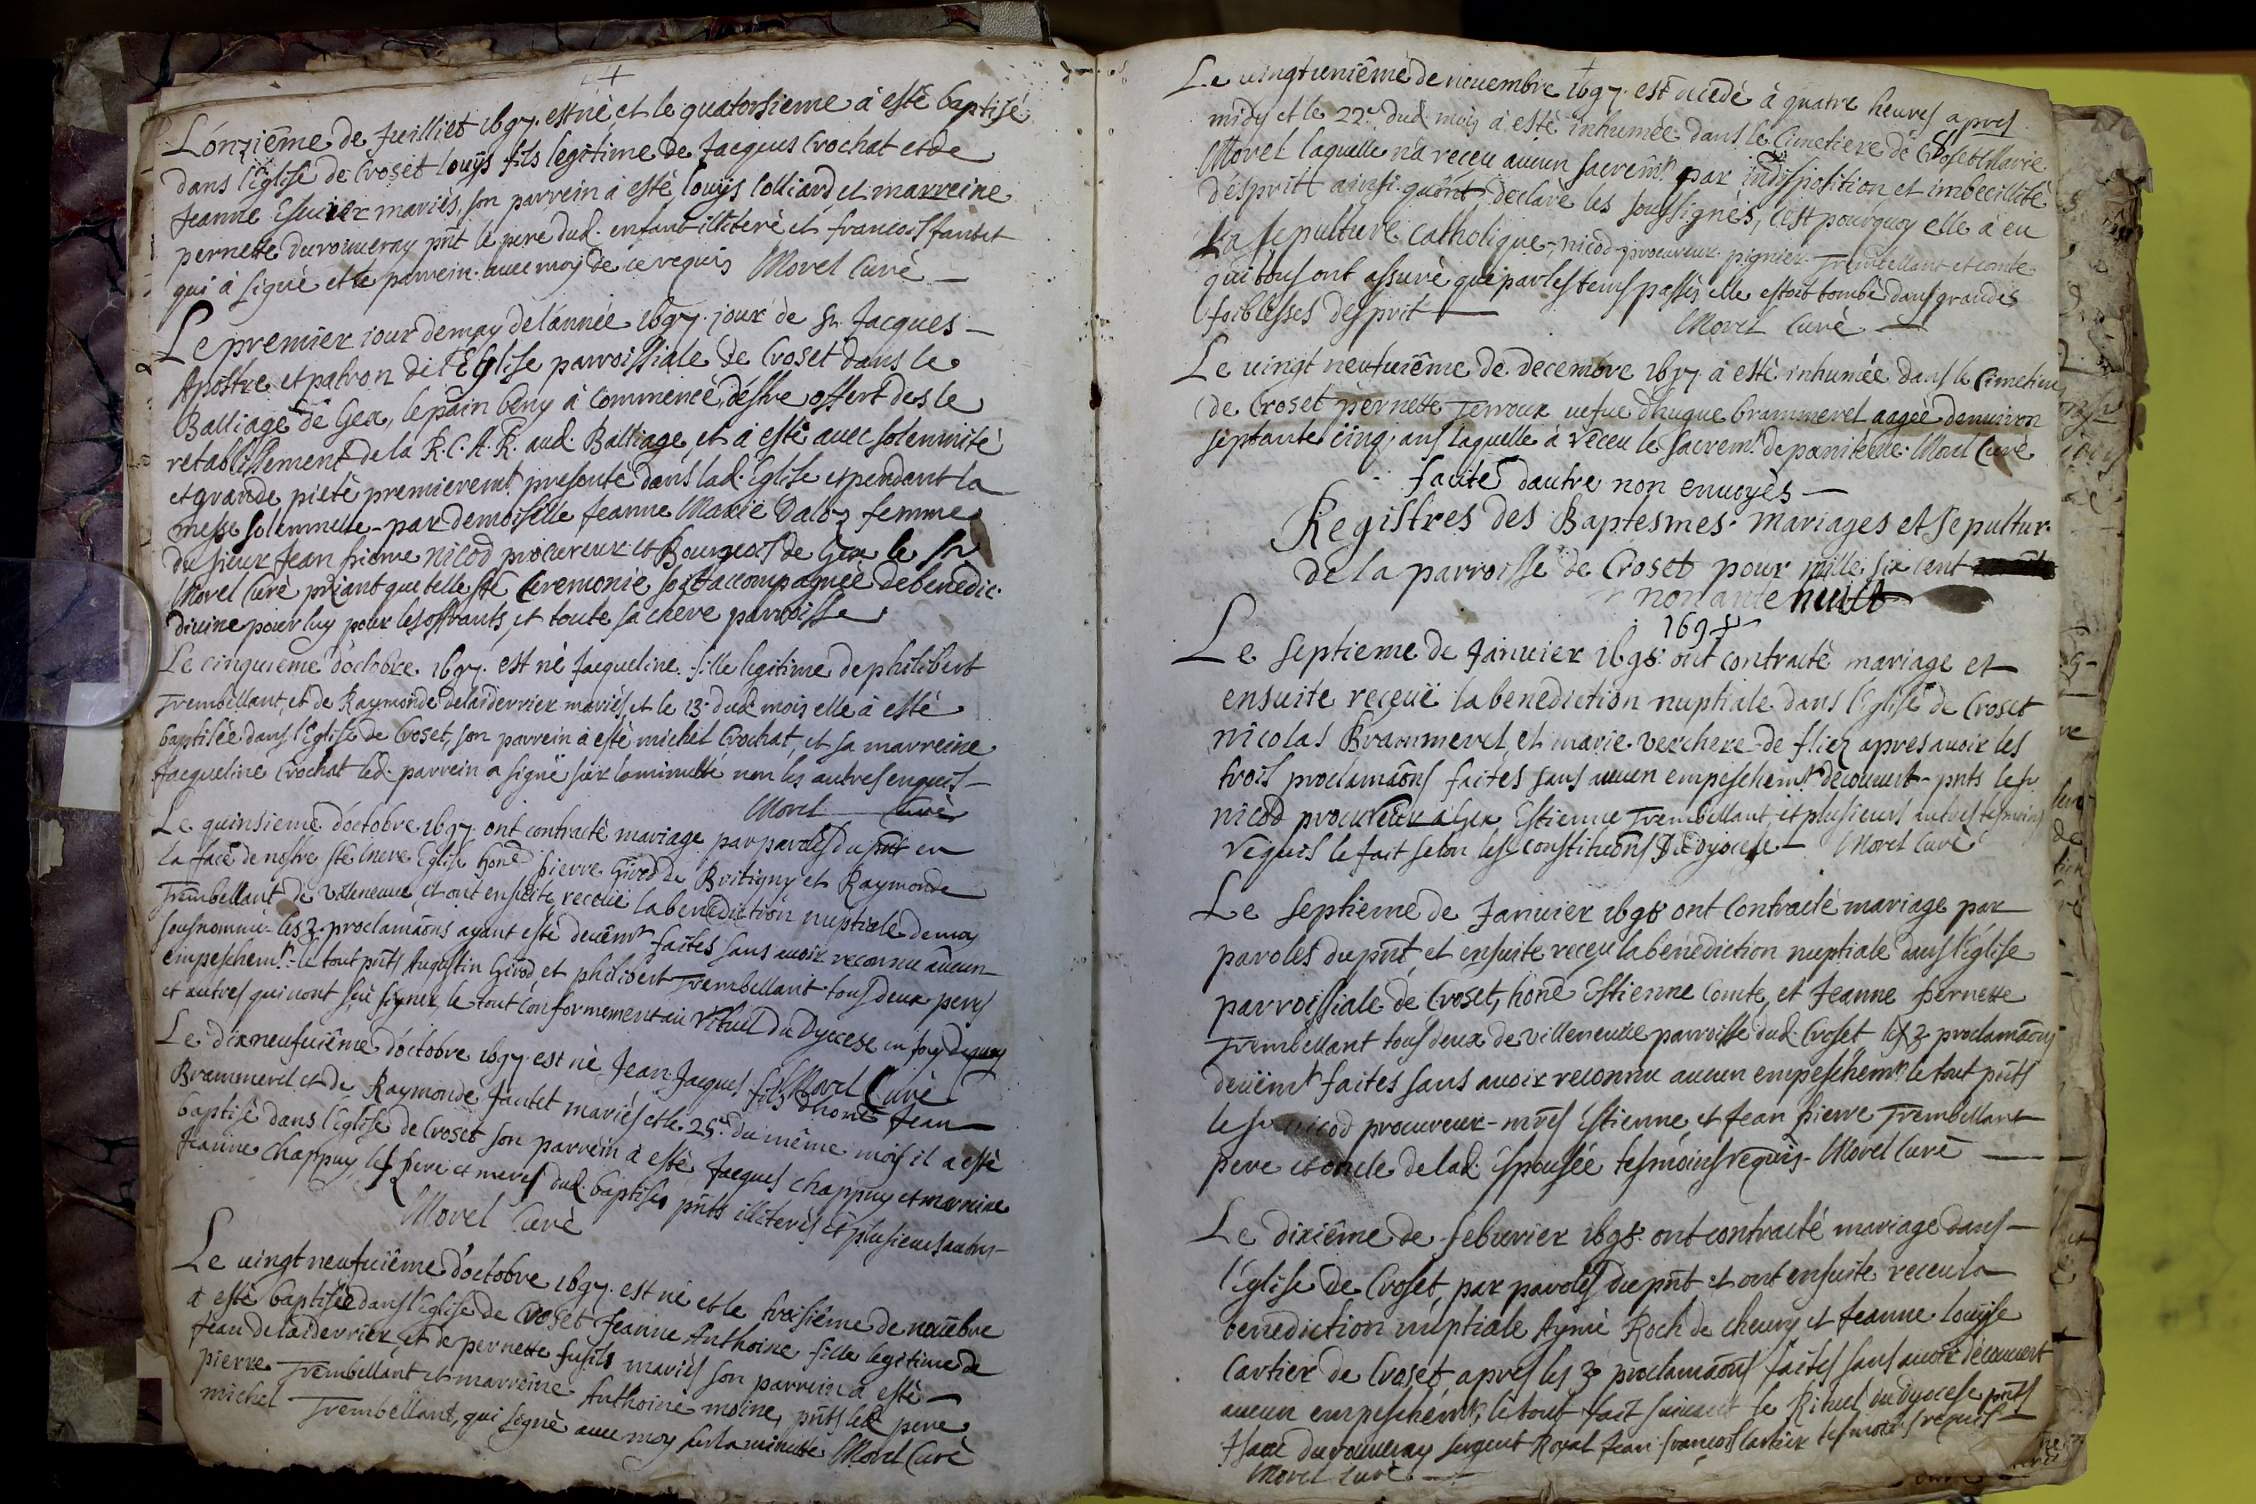 L'onzième de Juilliet 1697. est né et le quatorsieme à esté baptisé
dans l'Eglise de Croset Louÿs fils legitime de Jacques Crochat et de
Jeanne mariés, son parrein à esté Louÿs Colliard et marreine
pernette duroumeray pnt le pere dud. enfant illiteré et francois fautet
qui à signé et le parrein avec moy de ce requis Morel Curé
Le premier iour de may de l'année 1697. jour de St. Jacques
Apostre et patron de l'Eglise parroissiale de Croset dans le
Balliage de Gex, le pain beny à commencé d'estre offert des le
retablissement de la R.C.A.R. aud. Balliage, et à esté avec solemnité
et grande pieté premieremt. presenté dans lad. Eglise et pendant la
messe solemnelle par demoiselle Jeanne Marie Daloz femme
du sieur Jean pierre Nicod procureur et Bourgeois de Gex le Sr
Morel Curé priant que telle ste Ceremonie soit accompagnée de benedic.
divine pour luy pour les offrants, et toute sa chere parroisse
Le cinquieme d'octobre 1697. est né Jacqueline fille legitime de philibert
Trembellant, et de Raymonde delaiderrier mariés, et le 13e dud. mois elle à esté
baptisée dans l'Eglise de Croset, son parrein à esté michel Crochat, et sa marreine
Jacqueline Crochat led. parrein a signé sur la minutte non les autres enquis
Morel Curé
Le quinsieme d'octobre 1697. ont contracté mariage par paroles du pnt en
la face de nostre ste mere Eglise honé pierre Girod de Britigny et Raymonde
Trembellant de villeneuve, et ont ensuite receüe la benediction nuptiale de moy
sousnommé les 3 proclamãons ayant esté deuëmt faites sans avoir reconnu aucun
empeschemt. le tout pnts Augustin Girod et philibert Trembellant tous deux peres
et autres qui n'ont sçeu signer, le tout conformement au Rituel du Dyocese en foy dequoy
Morel Curé
Le dixneufuième d'octobre 1697. est né Jean Jacques fils d'honé Jean
Brammerel et de Raymonde fautet mariés et le 25e. du même mois il a esté
baptisé dans l'Eglise de Croset son parrein à esté Jacques Chappuy et marreine
Jeanne Chappuy, les pere et meres dud. baptisés pnts illiterés et plusieurs autres
Morel Curé
Le vingt neufuième d'octobre 1697. est né et le troisième de novēbre
à esté baptisée dans l'Eglise de Croset Jeanne Anthoine fille legitime de
Jean delaiderrier, et de pernette fusils mariés son parrein à esté
pierre Trembellant et marreine Anthoine moine, pnts led. pere
michel Trembellant, qui signé avec moy sur la minutte Morel Curé
Le vingt unième de novembre 1697. est decedé à quatre heures apres
midy et le 22e. dud. mois à esté inhumée dans le Cimetiere de Croset Marie
Morel laquelle n'a receu aucun sacremt. par indisposition et imbecillité
d'esprit ainsi qu'ont declaré les soussignés, c'est pourquoy elle à eu
la sepulture catholique, nicod procureur pignier Trembellant et conte
qui tous ont assuré que par les tems passés elle estoit tombé dans grandes
foiblesses d'esprit
Morel Curé
Le vingt neufuième de decembre 1697. à esté inhumée dans le Cimetiere
de Croset pernette Terroux vefue d'hugue Brammerel aagée d'enuiron
septante cinq ans laquelle à receu le sacremt. de penitence. Morel Curé
faute d'autre non envoyés
Registres des Baptesmes. mariages et sepultur.
de la parroisse de Croset pour mille six cent
nonante huict
1698
Le septieme de Janvier 1698. ont contracté mariage et
ensuite receüe la benediction nuptiale dans l'Eglise de Croset
nicolas Brammerel, et marie verchere de fliez apres avoir les
trois proclamãons faites sans aucun empeschemt. decouvert pnts le sr
nicod procureur à Gex Estienne Trembellant et plusieurs autres tesmoins
requis le fait selon les constitutions du dyocese Morel Curé
Le septieme de Janvier 1698 ont contracté mariage par
paroles du pnt, et ensuite receu la benediction nuptiale dans l'Eglise
parroissiale de Croset, honé Estienne Comte, et Jeanne pernette
Trembellant tous deux de villeneuve parroisse dud. Croset les 3 proclamãons
deuëmt faites sans avoir reconnu aucun empeschemt. le tout pnts
le sr nicod procureur - mres Estienne et Jean pierre Trembellant
pere et oncle de lad. Espousée tesmoins requis. Morel Curé
Le dixième de feburier 1698. ont contracté mariage dans
l'Eglise de Croset, par paroles du pnt et ont ensuite receu la
benediction nuptiale Aymé Roch de cheury et Jeanne Louÿse
Cartier de Croset apres les 3 proclamãons faites sans avoir decouvert
aucun empeschemt, le tout fait suivant le Rituel du dyocese pnts
Isaac duroumeray sergent Royal Jean francois Cartier tesmoins requis
Morel Curé